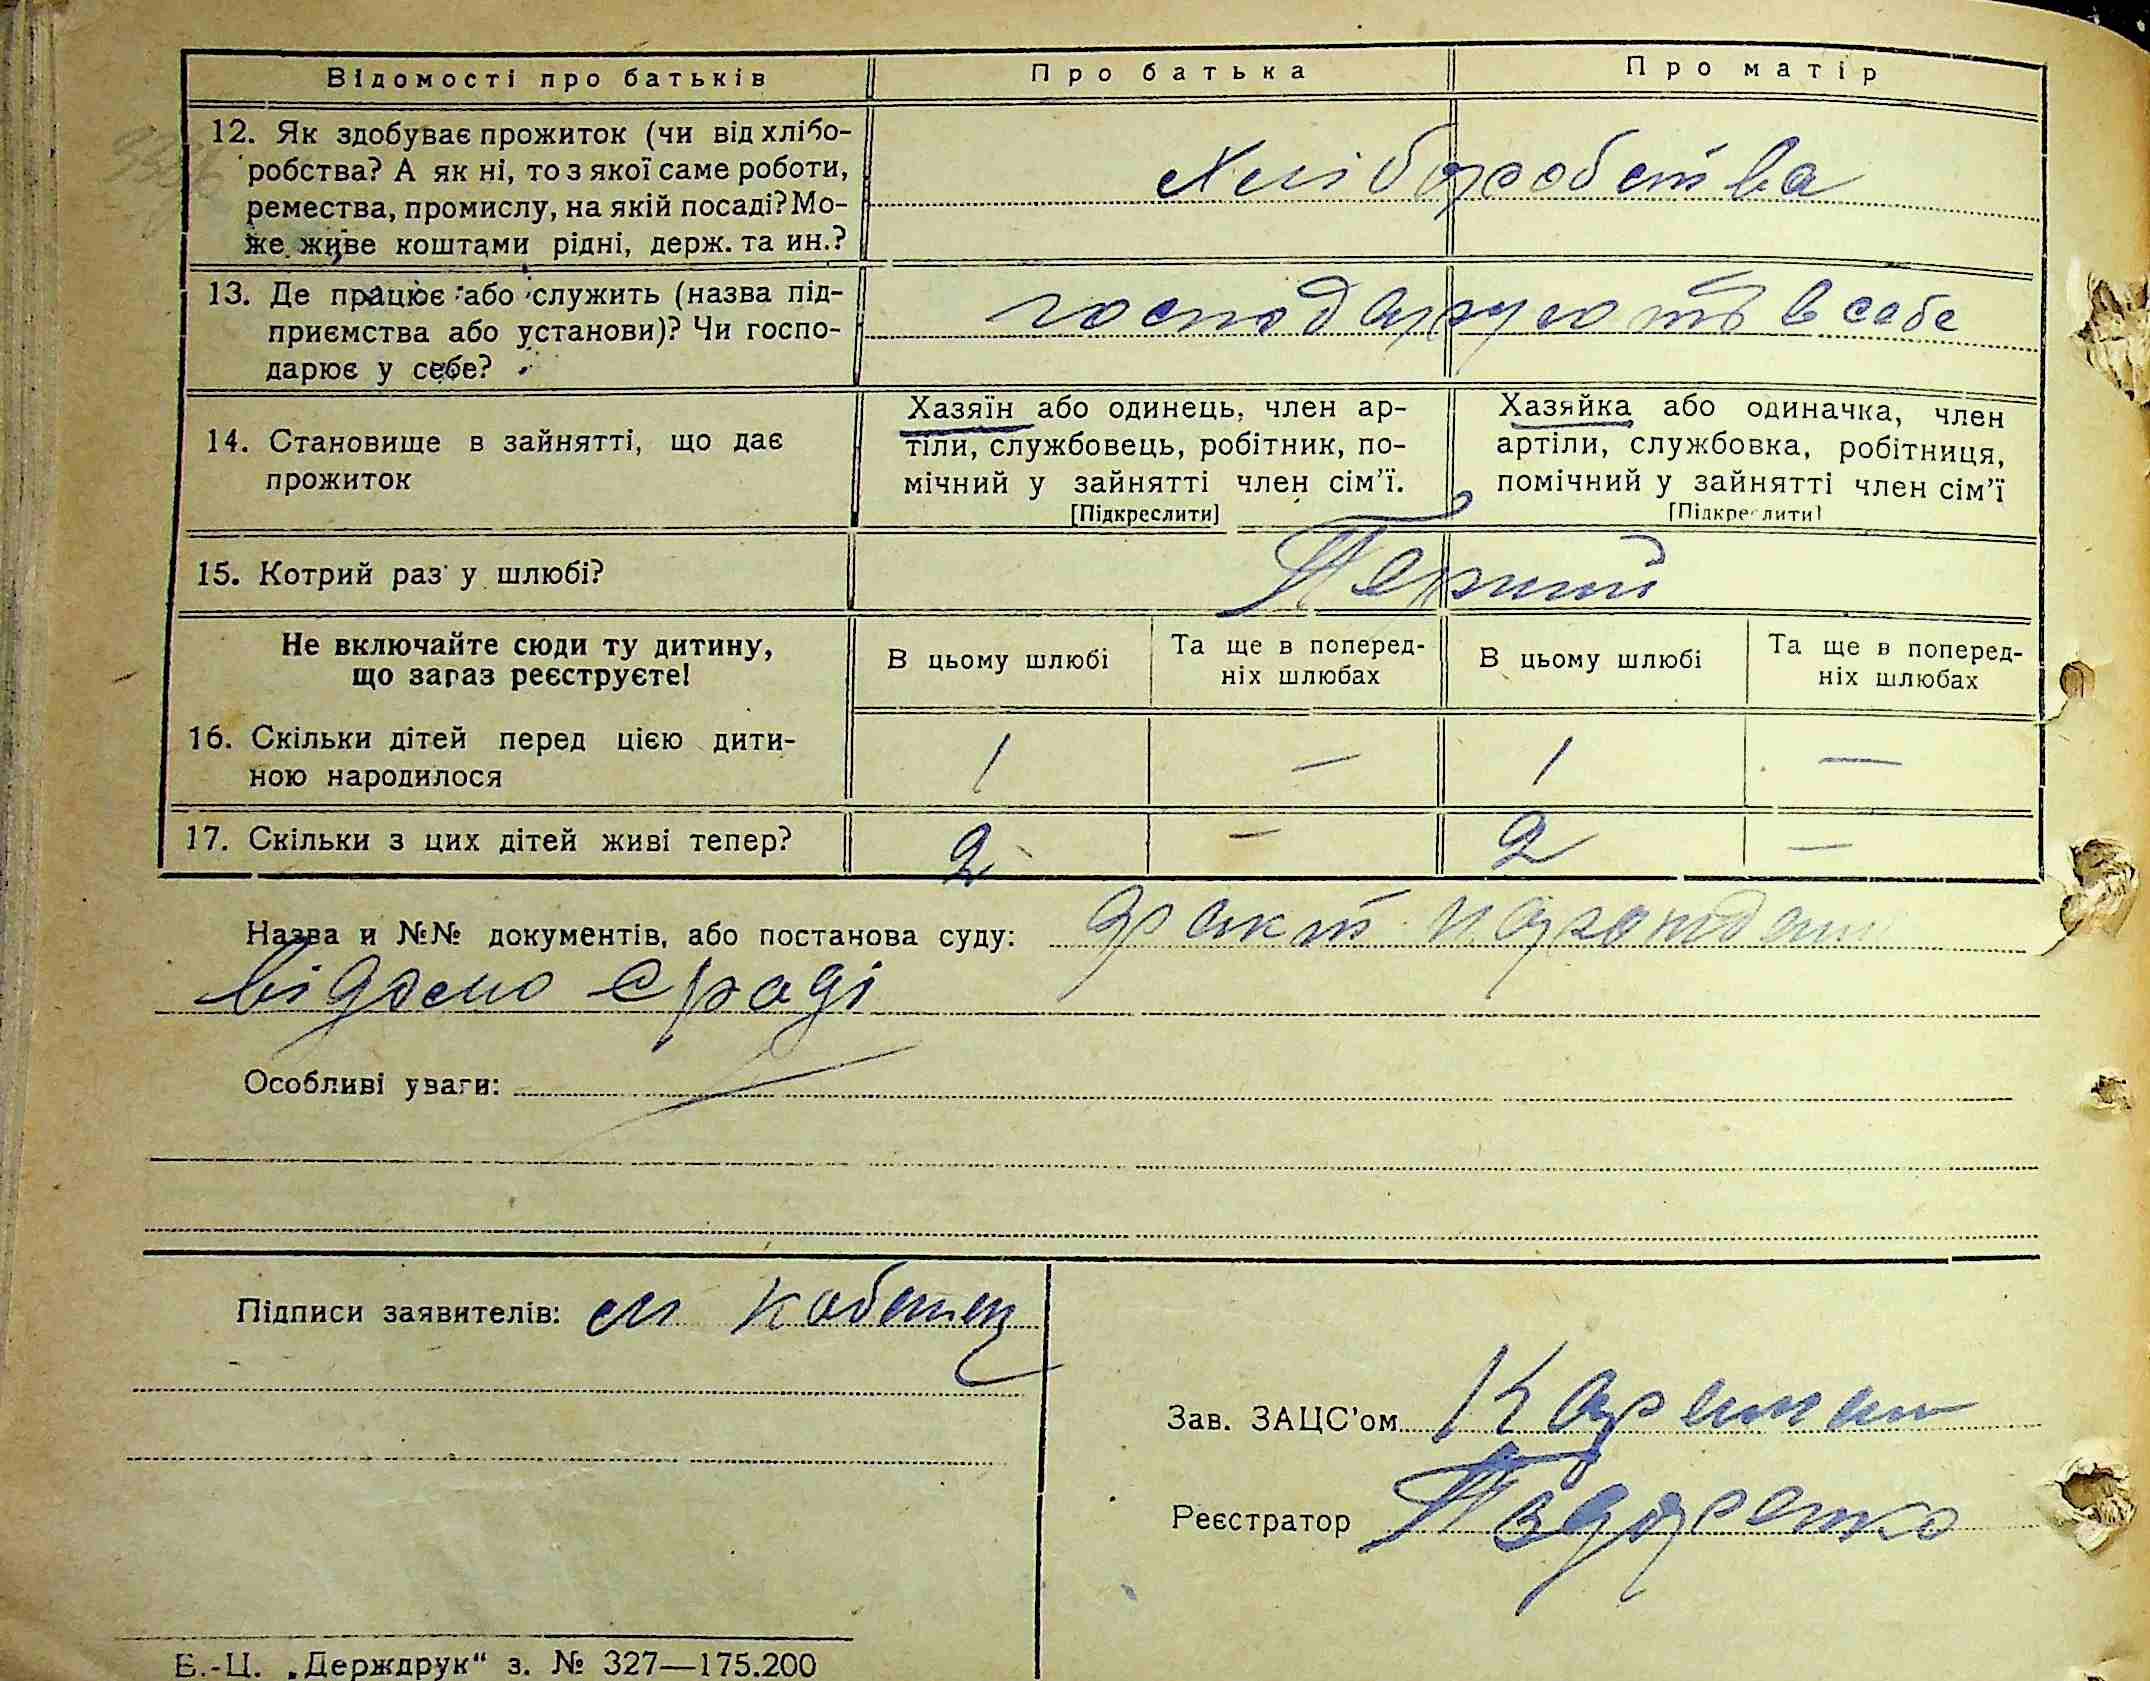 Відомості про батьків Про батька Про матір
12. Як здобуває прожиток (чи від хлібо-
робства? А як ні, то з якої саме роботи,
ремества, промислу, на якій посаді? Мо-
же живе коштами рідні, держ. та ин.?
Хліборобства
13. Де працює або служить (назва під-
приємства або установи)? Чи госпо-
дарює у себе?
господарують в себе
14. Становище в зайнятті, що дає
прожиток
Хазяїн або одинець, член ар-
тіли, службовець, робітник, по-
мічний у зайнятті член сім'ї.
[Підкреслити]
Хазяйка або одиначка, член
артіли, службовка, робітниця,
помічний у зайнятті член сім'ї
[Підкреслити]
15. Котрий раз у шлюбі? Перший
Не включайте сюди ту дитину,
що зараз реєструєте!
В цьому шлюбі
Та ще в поперед-
ніх шлюбах
В цьому шлюбі
Та ще в поперед-
ніх шлюбах
16. Скільки дітей перед цією дити-
ною народилося
1 — 1 —
17. Скільки з цих дітей живі тепер? 2 — 2 —
Назва и №№ документів, або постанова суду: факт
відомо
Особливі уваги:
Підписи заявителів:
Зав. ЗАЦС'ом
Реєстратор
Б.-Ц. „Держдрук" з. № 327—175.200